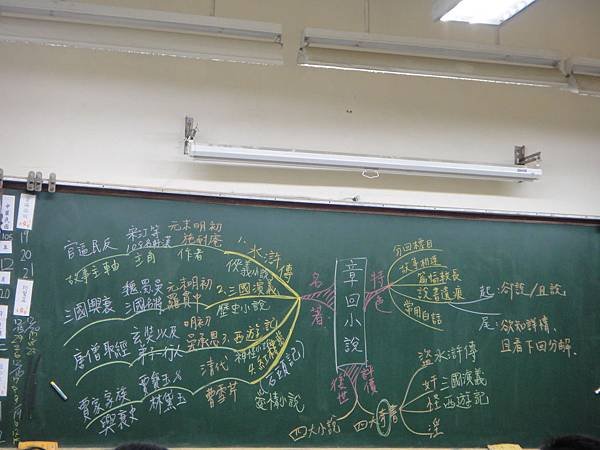 章回小說
名著
1. 水滸傳
俠義小說
元末明初
施耐庵
作者
宋江等
主角
官逼民反
故事主軸
2. 三國演義
歷史小說
元末明初
羅貫中
三國興衰
3. 西遊記
神怪小說
明初
吳承恩
玄奘以及
唐僧取經
4. 紅樓夢
(石頭記)
愛情小說
清代
曹雪芹
賈寶玉&
林黛玉
賈家家族
興衰史
特色
分回標目
故事相連
篇幅較長
說書遺痕
常用白話
起:卻說/且說
尾:欲知詳情,
且看下回分解.
評價
四大奇書
盜 水滸傳
奸 三國演義
怪 西遊記
淫
四大小說
中華民國
105
19
20
21